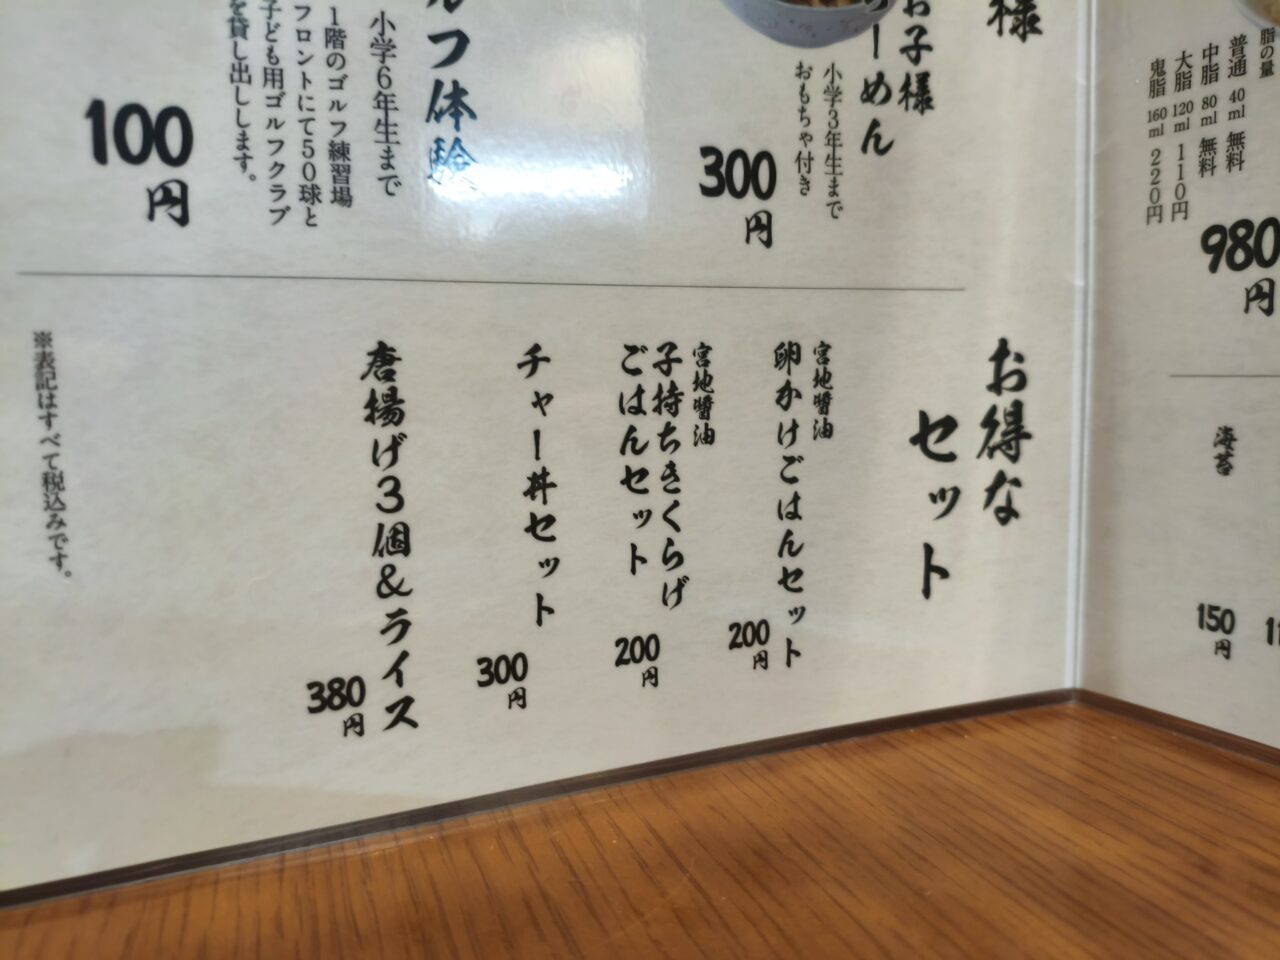 脂の量
普通 40ml 無料
中脂 80ml 無料
大脂 120ml 110円
鬼脂 160ml 220円
980円
海苔
150円
様
お子様
らーめん
小学3年生まで
おもちゃ付き
300円
ルフ体験
小学6年生まで
1階のゴルフ練習場
フロントにて50球と
子ども用ゴルフクラブ
を貸し出しします。
100円
お得な
セット
宮地醤油
卵かけごはんセット
200円
宮地醤油
子持ちきくらげ
ごはんセット
200円
チャー丼セット
300円
唐揚げ3個&ライス
380円
※表記はすべて税込みです。